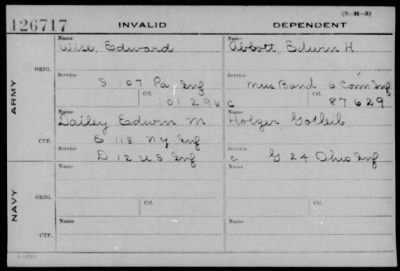 (3-M-3)
126717 INVALID DEPENDENT
Name Name
Wise, Edward Abbott, Edwin H
ORIG. Service Service
S 107 Pa Inf Mus Band 6 Conn Inf
Ctf. Ctf.
101296 C 87629
ARMY
Name Name
Lailey Edwin M Holger Gotleib
CTF. Service Service
E 118 NY Inf
D 12 US Inf C G 24 Ohio Inf
NAVY
Name Name
ORIG. Service Ctf. Service Ctf.
Name Name
CTF. Service Service